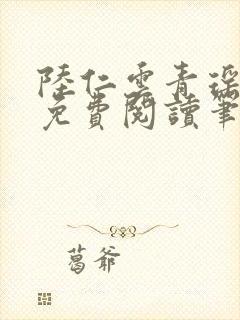 陸仁雲青瑤
免費閱讀筆
葛爷